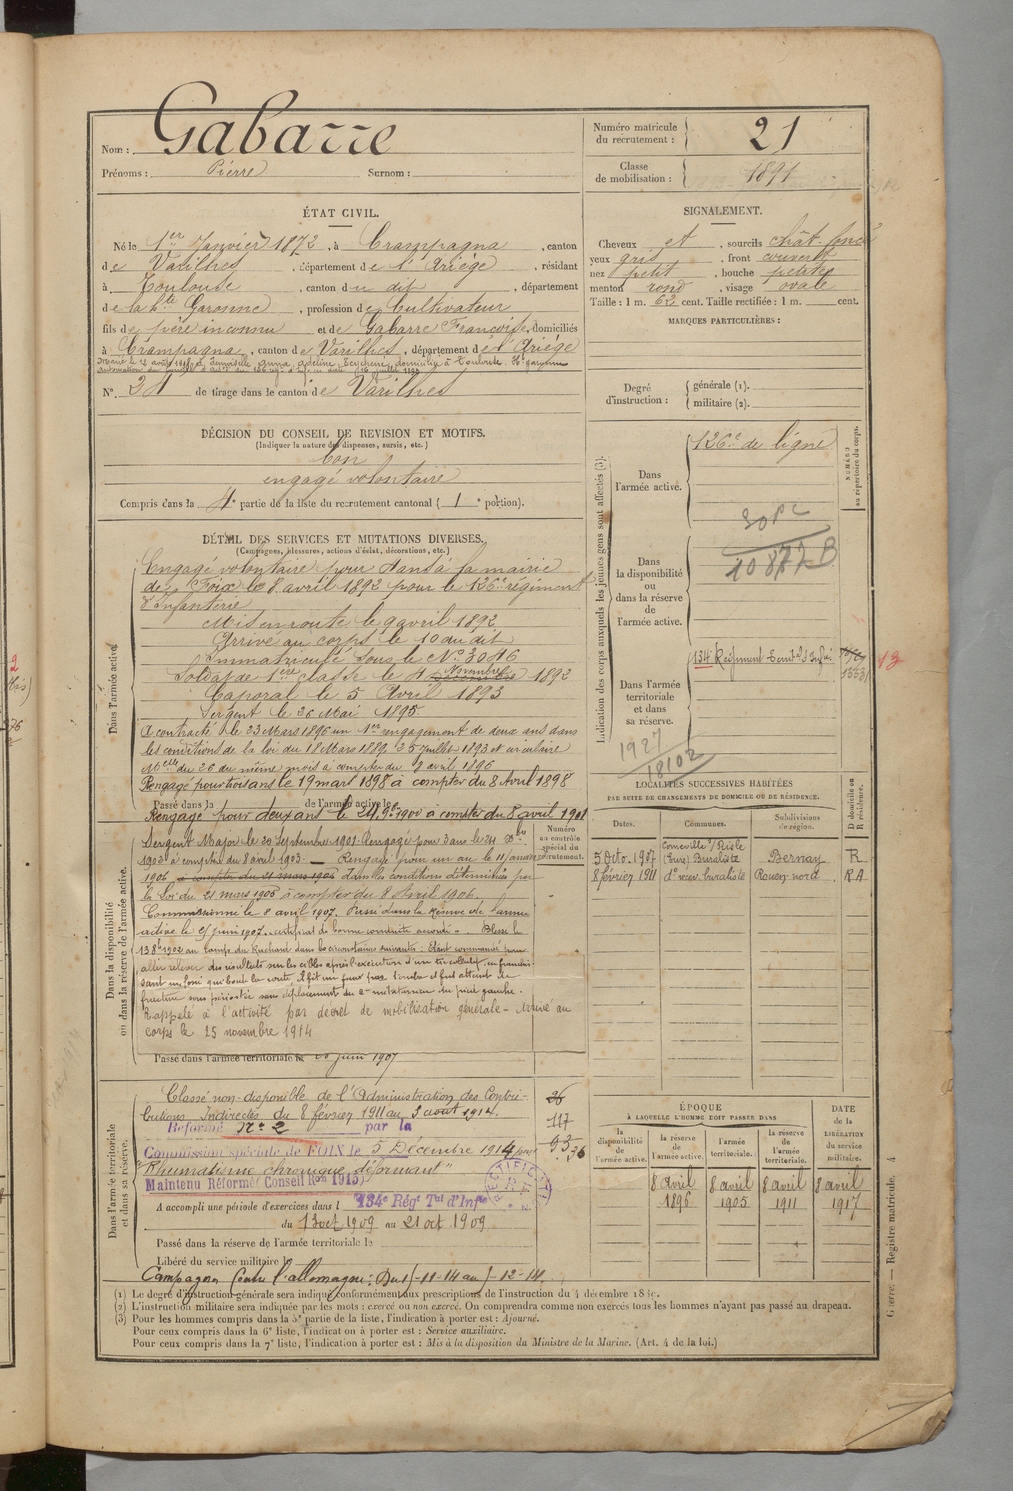 Nom : Gabarre
Prénoms : Pierre Surnom :
Numéro matricule du recrutement : 21
Classe de mobilisation : 1891
ÉTAT CIVIL.
Né le 1er Janvier 1872, à Crampagna, canton
de Varilhes, département de l'Ariège, résidant
à Toulouse, canton du dit, département
de la Hte Garonne, profession de Cultivateur
fils de père inconnu et de Gabarre Françoise, domiciliés
à Crampagna, canton de Varilhes, département de l'Ariège
N° 21 de tirage dans le canton de Varilhes
SIGNALEMENT.
Cheveux et, sourcils chât. foncé
yeux gris, front couvert
nez petit, bouche petite
menton rond, visage ovale
Taille : 1 m. 62 cent. Taille rectifiée : 1 m. cent.
MARQUES PARTICULIÈRES :
Degré d'instruction : générale (1).
militaire (2).
DÉCISION DU CONSEIL DE REVISION ET MOTIFS.
(Indiquer la nature des dispenses, sursis, etc.)
bon
engagé volontaire
Compris dans la 4e partie de la liste du recrutement cantonal (1e portion).
DÉTAIL DES SERVICES ET MUTATIONS DIVERSES.
(Campagnes, blessures, actions d'éclat, décorations, etc.)
Dans l'armée active.
Engagé volontaire pour 4 ans à la mairie
de Foix le 8 avril 1892 pour le 126e régiment
d'Infanterie
Mis en route le 9 avril 1892
Arrivé au corps le 10 au dit
Immatriculé sous le No 3016
Soldat de 1ère classe le Novembre 1892
Caporal le 5 Avril 1893
Sergent le 26 Mai 1895
A contracté le 23 Mars 1896 un 1er engagement de deux ans dans
les conditions de la loi du 18 Mars 1889 25 Juillet 1893 et circulaire
Mlle du 26 du même mois à compter du 8 avril 1896
Rengagé pour trois ans le 19 mars 1898 à compter du 8 Avril 1898
Passé dans la de l'armée active le
Rengagé pour deux ans le 24 9bre 1900 à compter du 8 avril 1901
Numéro au contrôle spécial du recrutement.
Dans la disponibilité ou dans la réserve de l'armée active.
Sergent Major le 20 Septembre 1901. Rengagé pour 3 ans le 24 Xbre
1902 à compter du 8 avril 1903. — Rengagé pour un an le 11 Janvier
1906 à compter du 21 mars 1906 dans les conditions déterminées par
la loi du 21 mars 1905 à compter du 8 Avril 1906.
Commissionné le 8 avril 1907. Passé dans la Réserve de l'armée
active le juin 1907. certificat de bonne conduite accordé. Blessé le
1902 au camp du Ruchard dans les circonstances suivantes : Etant commandé pour
aller relever des résultats sur les cibles après l'exécution d'un tir collectif, en franchis-
sant un fossé qui borde la route, il fit un faux pas, tomba et fut atteint de
fracture sous périostée sans déplacement du 2e métatarsien du pied gauche.
Rappelé à l'activité par décret de mobilisation générale - Arrivé au
corps le 25 novembre 1914
Passé dans l'armée territoriale le juin 1907
Dans l'armée territoriale et dans sa réserve.
Classé non-disponible de l'Administration des Contri-
butions Indirectes du 8 février 1911 au 3 août 1914.
Réformé N° 2 par la
Commission spéciale de FOIX le 5 Décembre 1914 pour
"Rhumatisme chronique déformant"
Maintenu Réformé (Conseil Ron 1915)
134e Régt Tal d'Infie
RECTIFICATION
A accompli une période d'exercices dans l
du 13 oct 1909 au 21 oct 1909
Passé dans la réserve de l'armée territoriale le
Libéré du service militaire le
Campagne contre l'allemagne : Du -11-14 au 5-12-14
26
117
Indication des corps auxquels les jeunes gens sont affectés (3).
NUMÉRO au répertoire du corps.
Dans l'armée active. 126e de ligne
Dans la disponibilité ou dans la réserve de l'armée active.
10877 B
Dans l'armée territoriale et dans sa réserve.
134 Régiment Territal d'Infrie
13
1927
18102
LOCALITÉS SUCCESSIVES HABITÉES
PAR SUITE DE CHANGEMENTS DE DOMICILE OU DE RÉSIDENCE.
Dates. Communes. Subdivisions de région. D domicile ou R résidence.
5 Octo. 1907 Corneville s/ Risle (Eure) Buraliste Bernay R
8 février 1911 do recev. buraliste Rouen-nord RA
ÉPOQUE
À LAQUELLE L'HOMME DOIT PASSER DANS
DATE DE LA LIBÉRATION du service militaire.
la disponibilité de l'armée active. la réserve de l'armée active. l'armée territoriale. la réserve de l'armée territoriale.
8 avril 1896 8 avril 1905 8 avril 1911 8 avril 1917
Guerre. — Registre matricule. 4
(1) Le degré d'instruction générale sera indiqué conformément aux prescriptions de l'instruction du 4 décembre 1889.
(2) L'instruction militaire sera indiquée par les mots : exercé ou non exercé. On comprendra comme non exercés tous les hommes n'ayant pas passé au drapeau.
(3) Pour les hommes compris dans la 5e partie de la liste, l'indication à porter est : Ajourné.
Pour ceux compris dans la 6e liste, l'indication à porter est : Service auxiliaire.
Pour ceux compris dans la 7e liste, l'indication à porter est : Mis à la disposition du Ministre de la Marine. (Art. 4 de la loi.)